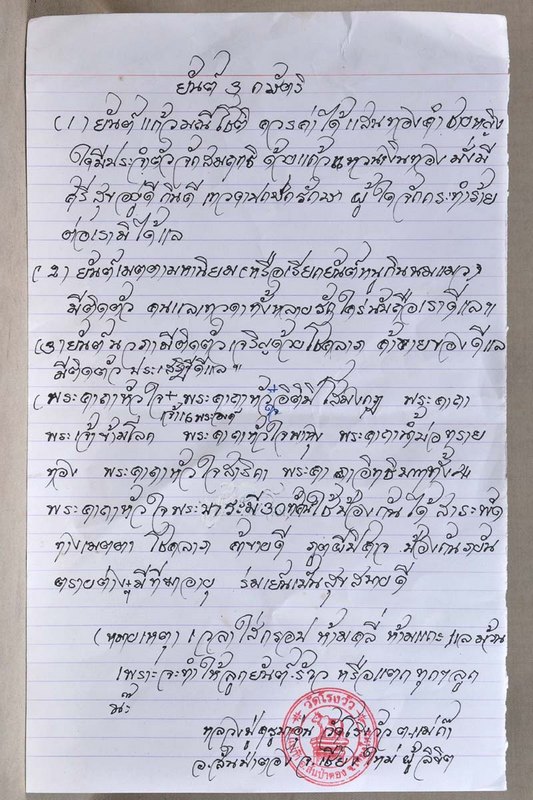 ยันต์ 3 กษัตริ
(1) ยันต์แก้วมณีโชติ ควรค่าได้แสนทองคำ ชายหลิง
ใดมีประจำตัวจักสมฤทธิ ด้วยแก้วแหวนเงินทอง มั่งมี
ศรีสุขอยู่ดีกินดี เทวดาปกปักรักษา ผู้ใดจักกระทำร้าย
ต่อเรามิได้แล
(2) ยันต์เมตตามหานิยม (หรือเรียกยันต์หนูกินนมแมว)
มีติดตัว คนแลเทวดาทั้งหลายรักใคร่นับถือเราดีแลฯ
(3) ยันต์นวภา มีติดตัวเจริญด้วยโชคลาภ ค้าขายของดีแล
มีติดตัวประเสริฐดีแลฯ
(พระคาถาหัวใจ + พระคาถาหัวอิติปิโสมงกุฎ พระคาถา
เจ้า16พระองค์
พระเจ้าข้ามโลก พระคาถาหัวใจพาหุง พระคาถาน้ำบ่อทราย
ทอง พระคาถาหัวใจสาริกา พระคาถาอิทธิ ทั้ง4
พระคาถาหัวใจพระบารมี30ทัศใช้ป้องกันได้สาระพัด
ทางเมตตา โชคลาภ ค้าขายดี ภูตผีปีศาจ ป้องกันภยัน
ตรายต่างๆ อายุ ร่มเย็นเป็นสุขสบายดี
(หมายเหตุ) เวลาใส่กรอบ ห้ามคลี่ ห้ามแกะ แลม้วน
เพราะจะทำให้ลูกยันต์ร้าว หรือแตกทุกๆลูก
นะ
หลวงปู่ครูบาอุ่น วัดโรงวัว ต.แม่ก๊า
อ.สันป่าตอง จ.เชียงใหม่ ผู้ลิขิต
วัดโรงวัว